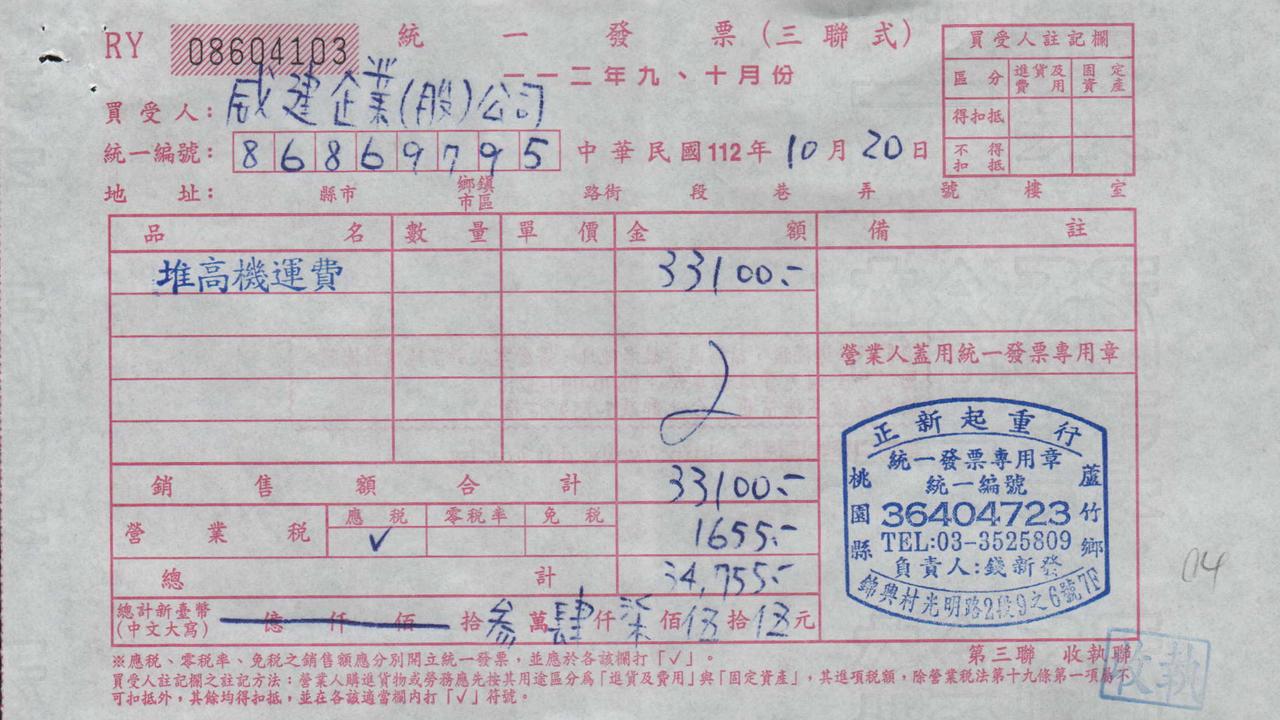 RY 08604103 統一發票(三聯式)
一一二年九、十月份
買受人註記欄
區分 進貨及費用 固定資產
得扣抵
不得扣抵
買受人: 威建企業(股)公司
統一編號: 86869795 中華民國112年10月20日
地址: 縣市 鄉鎮市區 路街 段 巷 弄 號 樓 室
品名 數量 單價 金額 備註
堆高機運費 33100.-
營業人蓋用統一發票專用章
銷售額合計 33100.-
營業稅 應稅 零稅率 免稅
✓ 1655.-
總計 34,755.-
總計新臺幣(中文大寫) 億 仟 佰 拾參萬肆仟柒佰伍拾伍元
正新起重行
統一發票專用章
統一編號
36404723
TEL:03-3525809
負責人:錢新發
桃園縣
蘆竹鄉
錦興村光明路2段9之6號7F
04
※應稅、零稅率、免稅之銷售額應分別開立統一發票,並應於各該欄打「✓」。
第三聯 收執聯
買受人註記欄之註記方法:營業人購進貨物或勞務應先按其用途區分為「進貨及費用」與「固定資產」,其進項稅額,除營業稅法第十九條第一項屬不
可扣抵外,其餘均得扣抵,並在各該適當欄內打「✓」符號。
收執